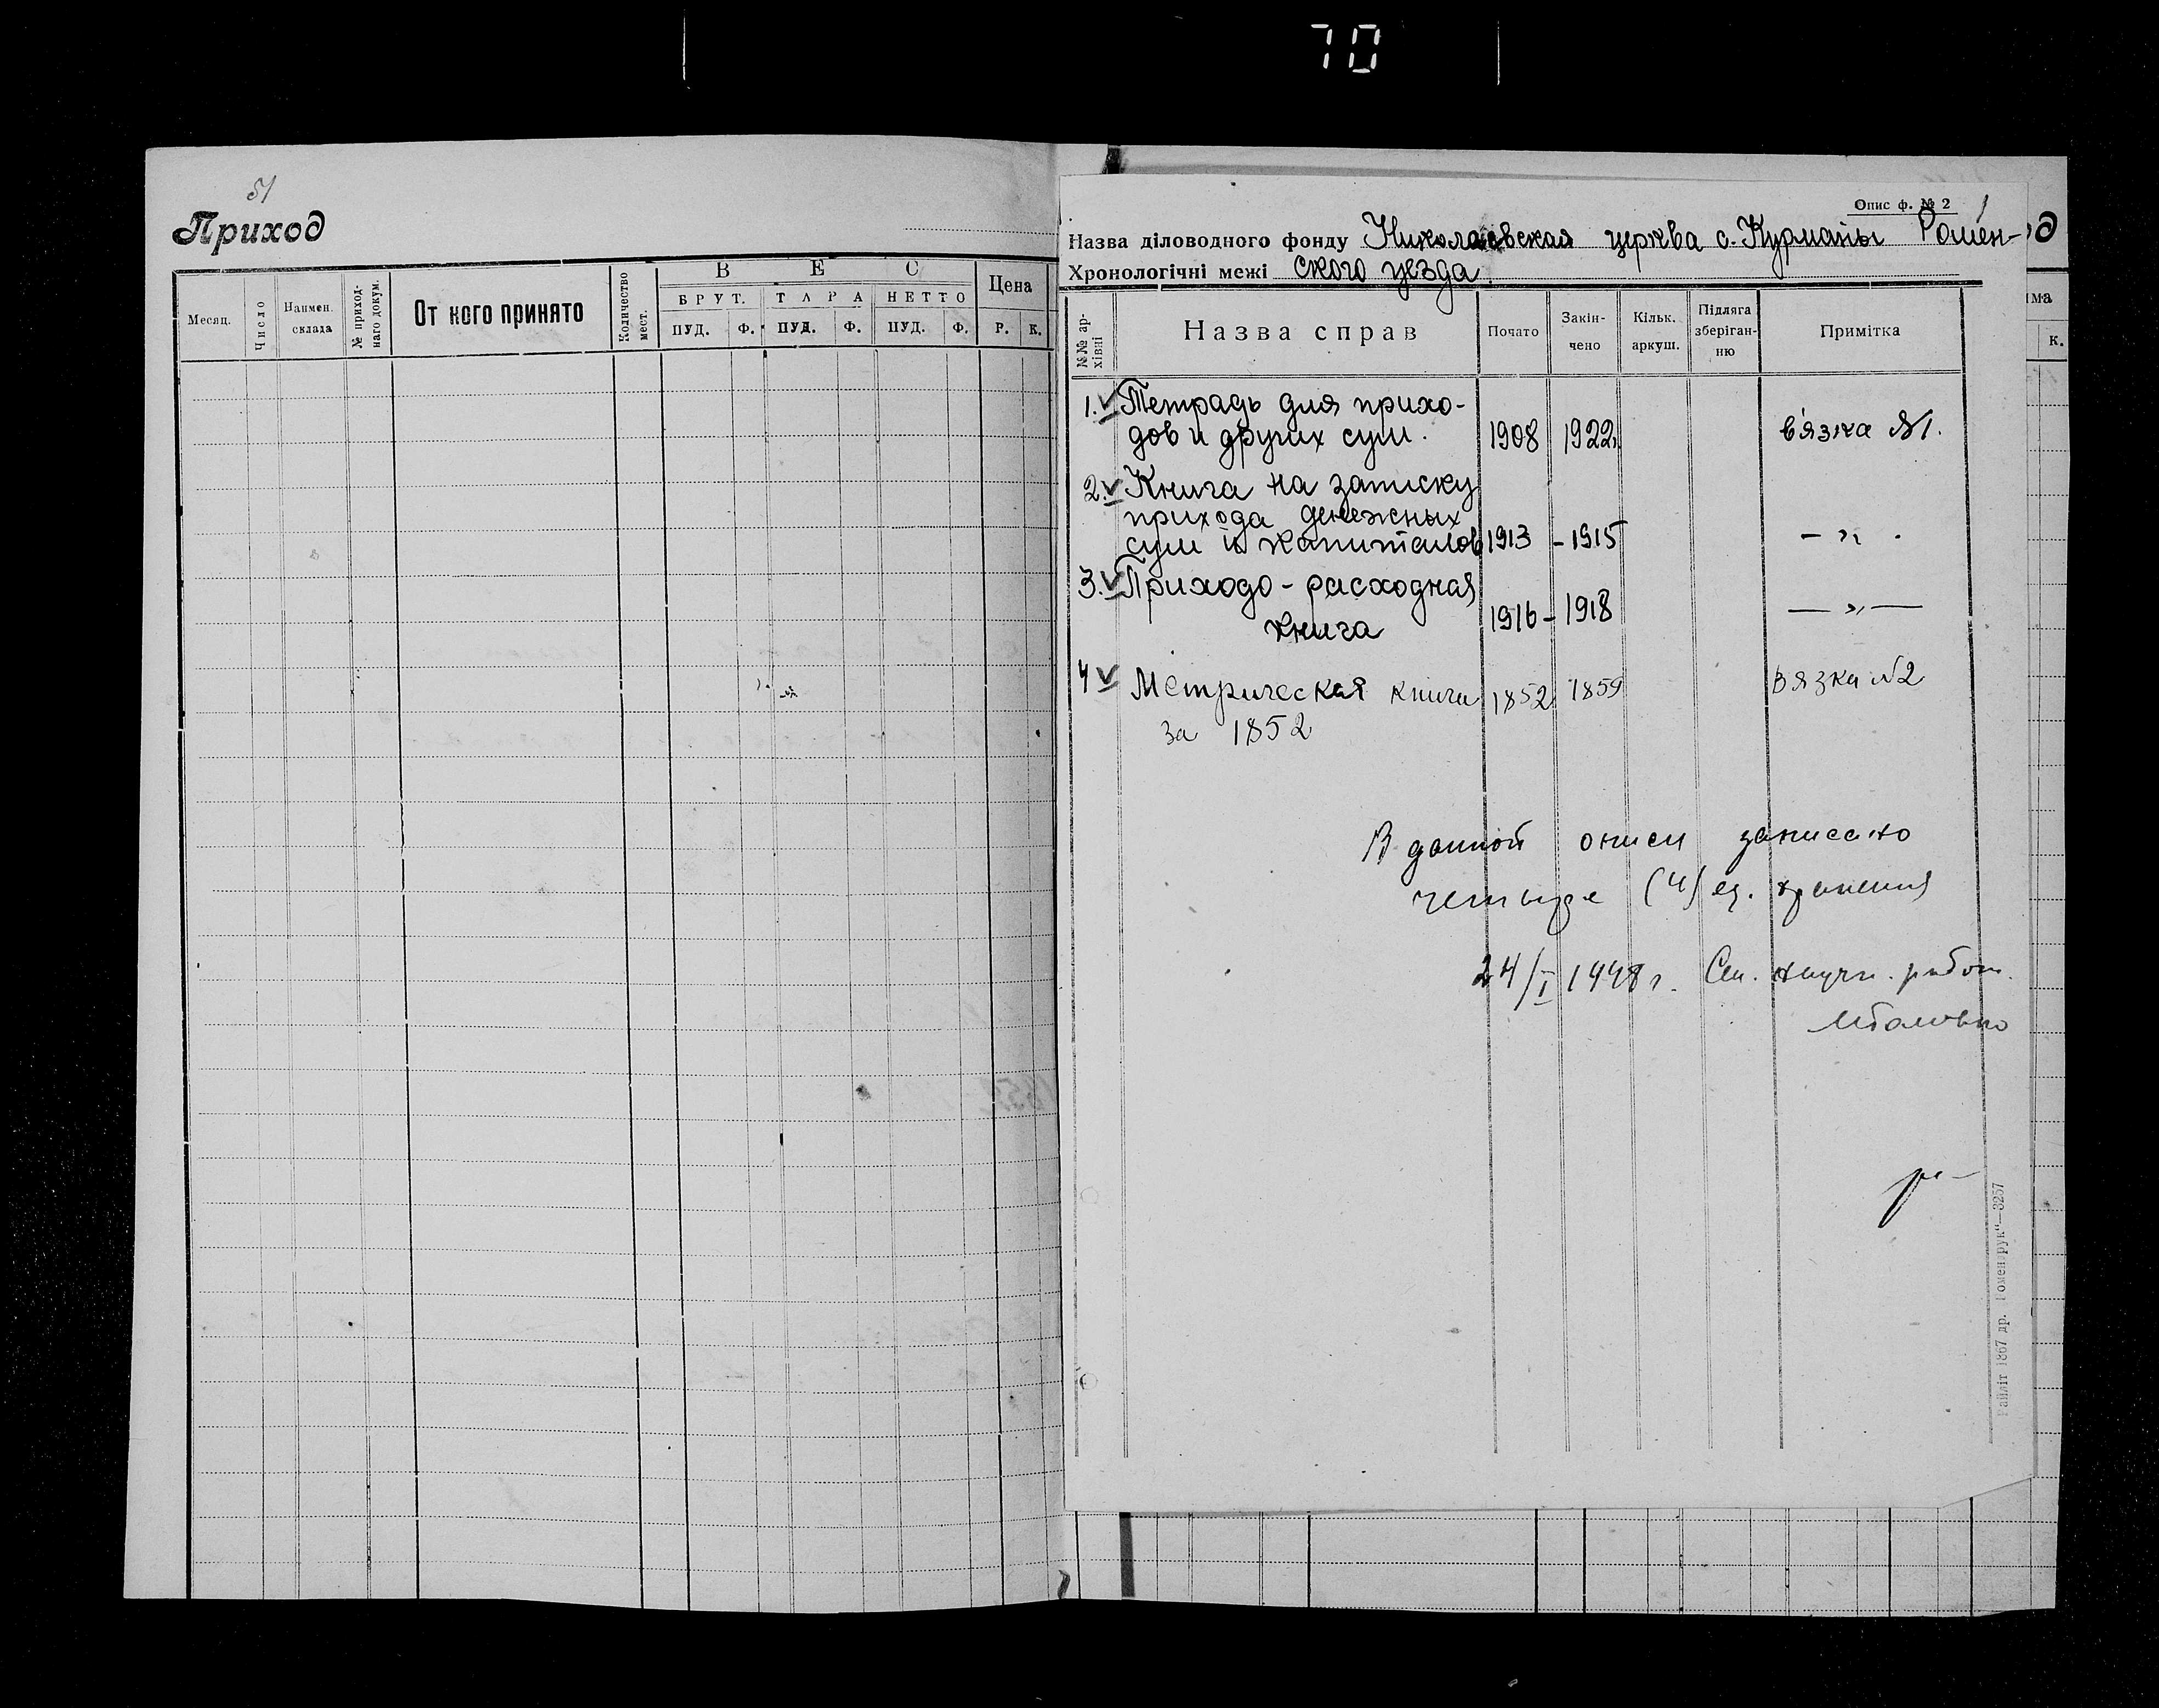 70
51
Приход
Месяц.
Число
Наимен. склада
№ приход-наго докум.
От кого принято
Количество мест.
В Е С
БРУТ. ТАРА НЕТТО
ПУД. Ф. ПУД. Ф. ПУД. Ф.
Цена
Р. К.
Опис ф. № 2
1
Назва діловодного фонду Николаевская церква с. Курманы Ромен-
Хронологічні межі ского уезда.
№№ ар-хівні
Назва справ
Почато
Закін-чено
Кільк. аркуш.
Підляга зберіган-ню
Примітка
1. Тетрадь для прихо-
дов и других сум. 1908 1922 в'язка №1.
2. Книга на записку
прихода денежных
сум и капиталов 1913 - 1915 - „ -
3. Приходо-расходная
книга 1916 - 1918 — „ —
4 Метрическая книга 1852 1859 Вязка №2
за 1852
В данной описи записано
четыре (4) ед. хранения
24/I 1948 г. Сен. научн. работ.
Райліт 1867 др. „Роменdрук“—3257
од
на
к.